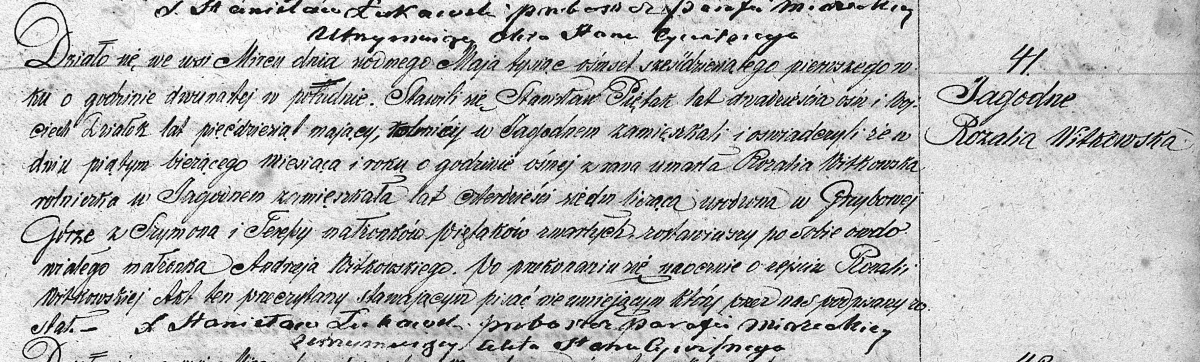 X. Stanisław Łukawski proboszcz parafii Mirzeckiey
Utrzymuiący Akta Stanu Cywilnego
41.
Jagodne
Rozalia Witkowska
Działo się we wsi Mircu dnia siodmego Maja tysiąc ośmset sześćdziesiątego pierwszego ro-
ku o godzinie dwunastej w południe. Stawili się Stanisław Piętak lat dwadzieścia ośm i Woj-
ciech Działok lat pięćdziesiat mający, rolnicy w Jagodnem zamieszkali i oswiadczyli że w
dniu piątym bieżącego miesiąca i roku o godzinie ósmej z rana umarła Rozalia Witkowska
rolniczka w Jagodnem zamieszkała lat czterdzieści siedm licząca urodzona w Grzybowej
Górze z Szymona i Teressy małżonków Piętaków zmarłych zostawiwszy po sobie owdo-
wiałego małżonka Andrzeja Witkowskiego. Po przekonaniu się naocznie o zejściu Rozalii
Witkowskiej Akt ten przeczytany stawającym pisać nieumiejącym który przez nas podpisany zo-
stał. – X. Stanisław Łukawski proboszcz Parafii Mirzeckiey
utrzymuiący Akta Stanu Cywilnego